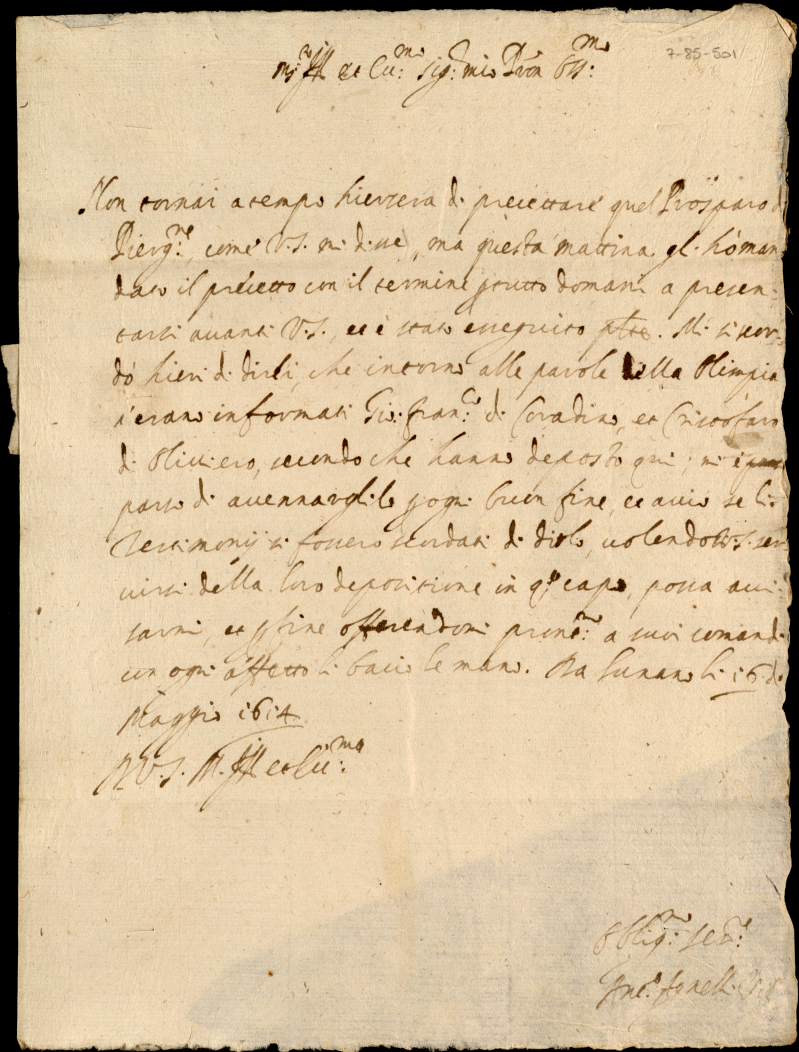 7-85-501
et Ecc:mo Sig:r mio Pron Oss:mo
Non tornai a tempo hiersera di precettare quel Prosparo di
Pierg:ne, come V.S. mi disse, ma questa mattina gl' hò man
dato il precetto con il termine p tutto domani a presen-
tarsi avanti V.S., et è stato esseguito. Mi si scor-
dò hieri di dirli, che intorno alle parole della Olimpia
s'erano informati Gio: Fran:co di Coradino, et Cristofaro
di Oliviero, secondo che hanno deposto qui; mi è
parso di accennarglilo p ogni buon fine, et acciò se li
Testimonij si fossero scordati di dirlo, volendo V.S. ser
virsi della loro depositione in q:o capo, possa avi-
sarmi, et p fine offerendomi pront:mo a suoi comandi
con ogni affetto li bacio le mani. Da Lunano li 16 di
Maggio 1614
D V.S. M. Ill et Ecc:ma
Oblig:mo Ser:re
Ant:o Fanelli